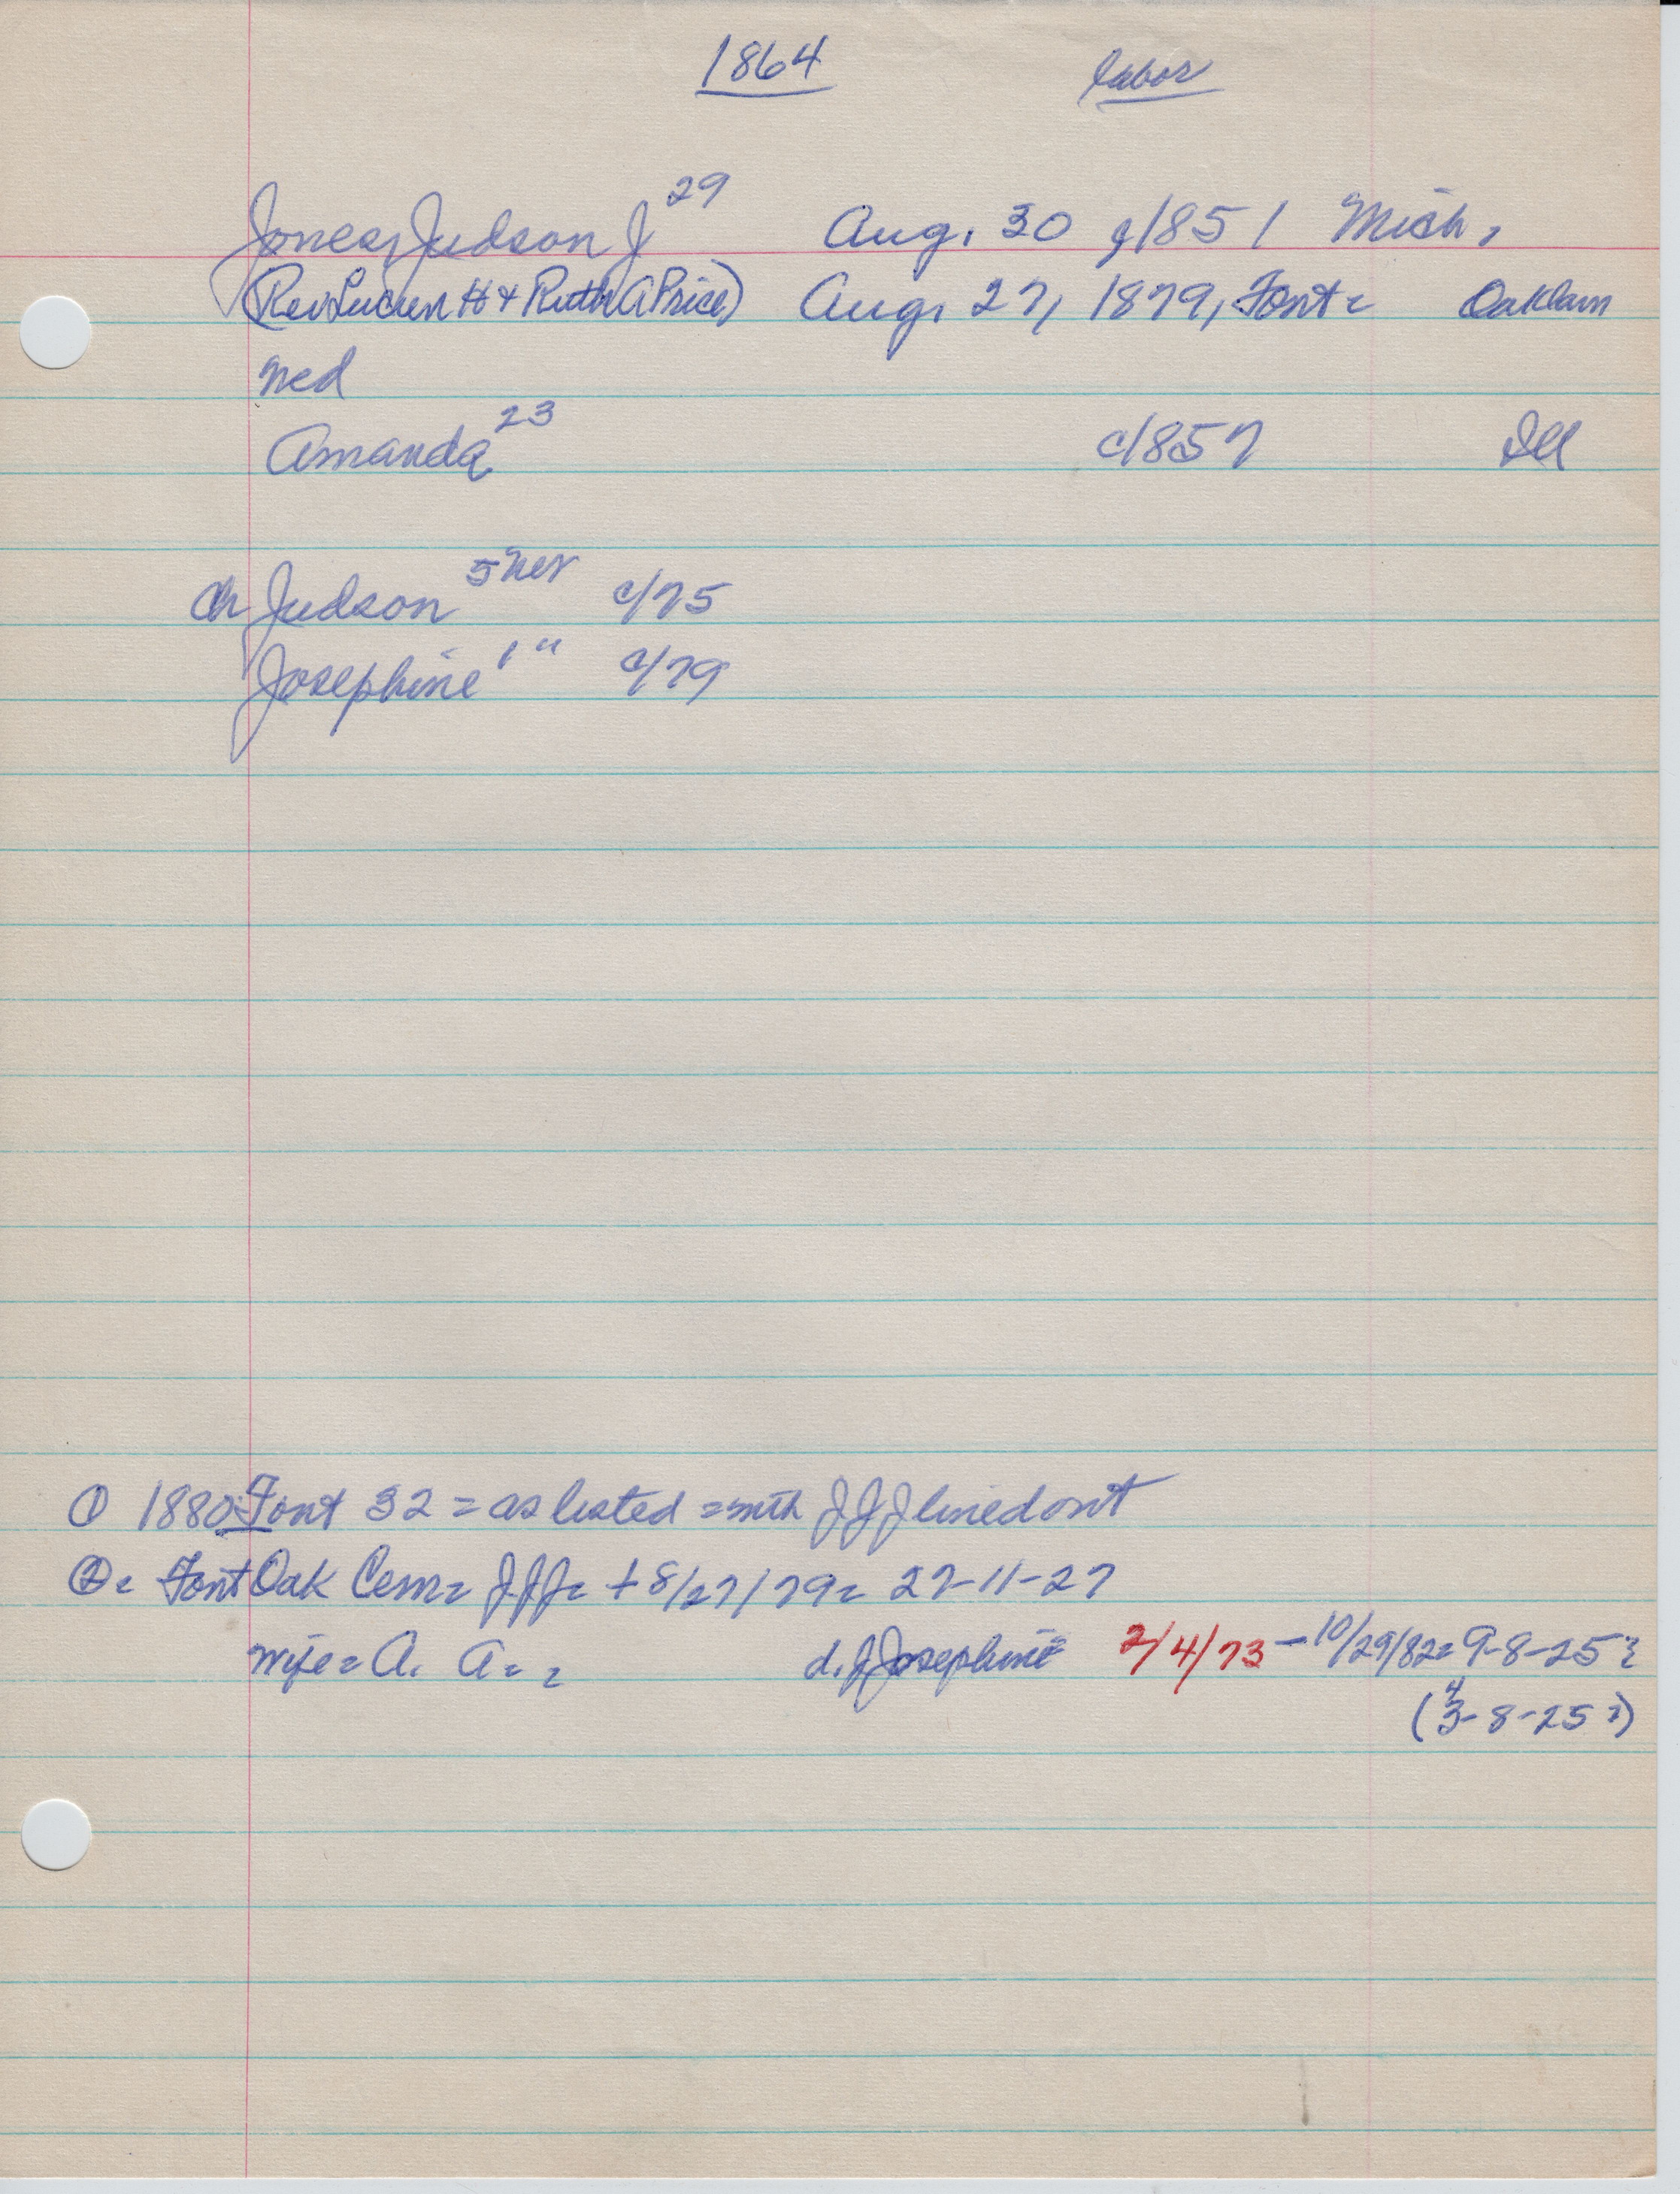 1864 labor
Jones, Judson J 29 Aug. 30 c/1851 Mich,
(Rev Lucien H + Ruth A Price) Aug. 27, 1879, Font = Oaklawn
ned
Amanda 23 c/857 Ill
ch Judson 5 nev c/75
Josephine 1 " c/79
① 1880 Font 32 = as listed = with JJJ lined out
② = Font Oak Cem = JJJ = + 8/27/79 = 27-11-27
wife = A. A = = d. J Josephine 2/4/73 - 10/29/82 = 9-8-25?
(4 3-8-25?)